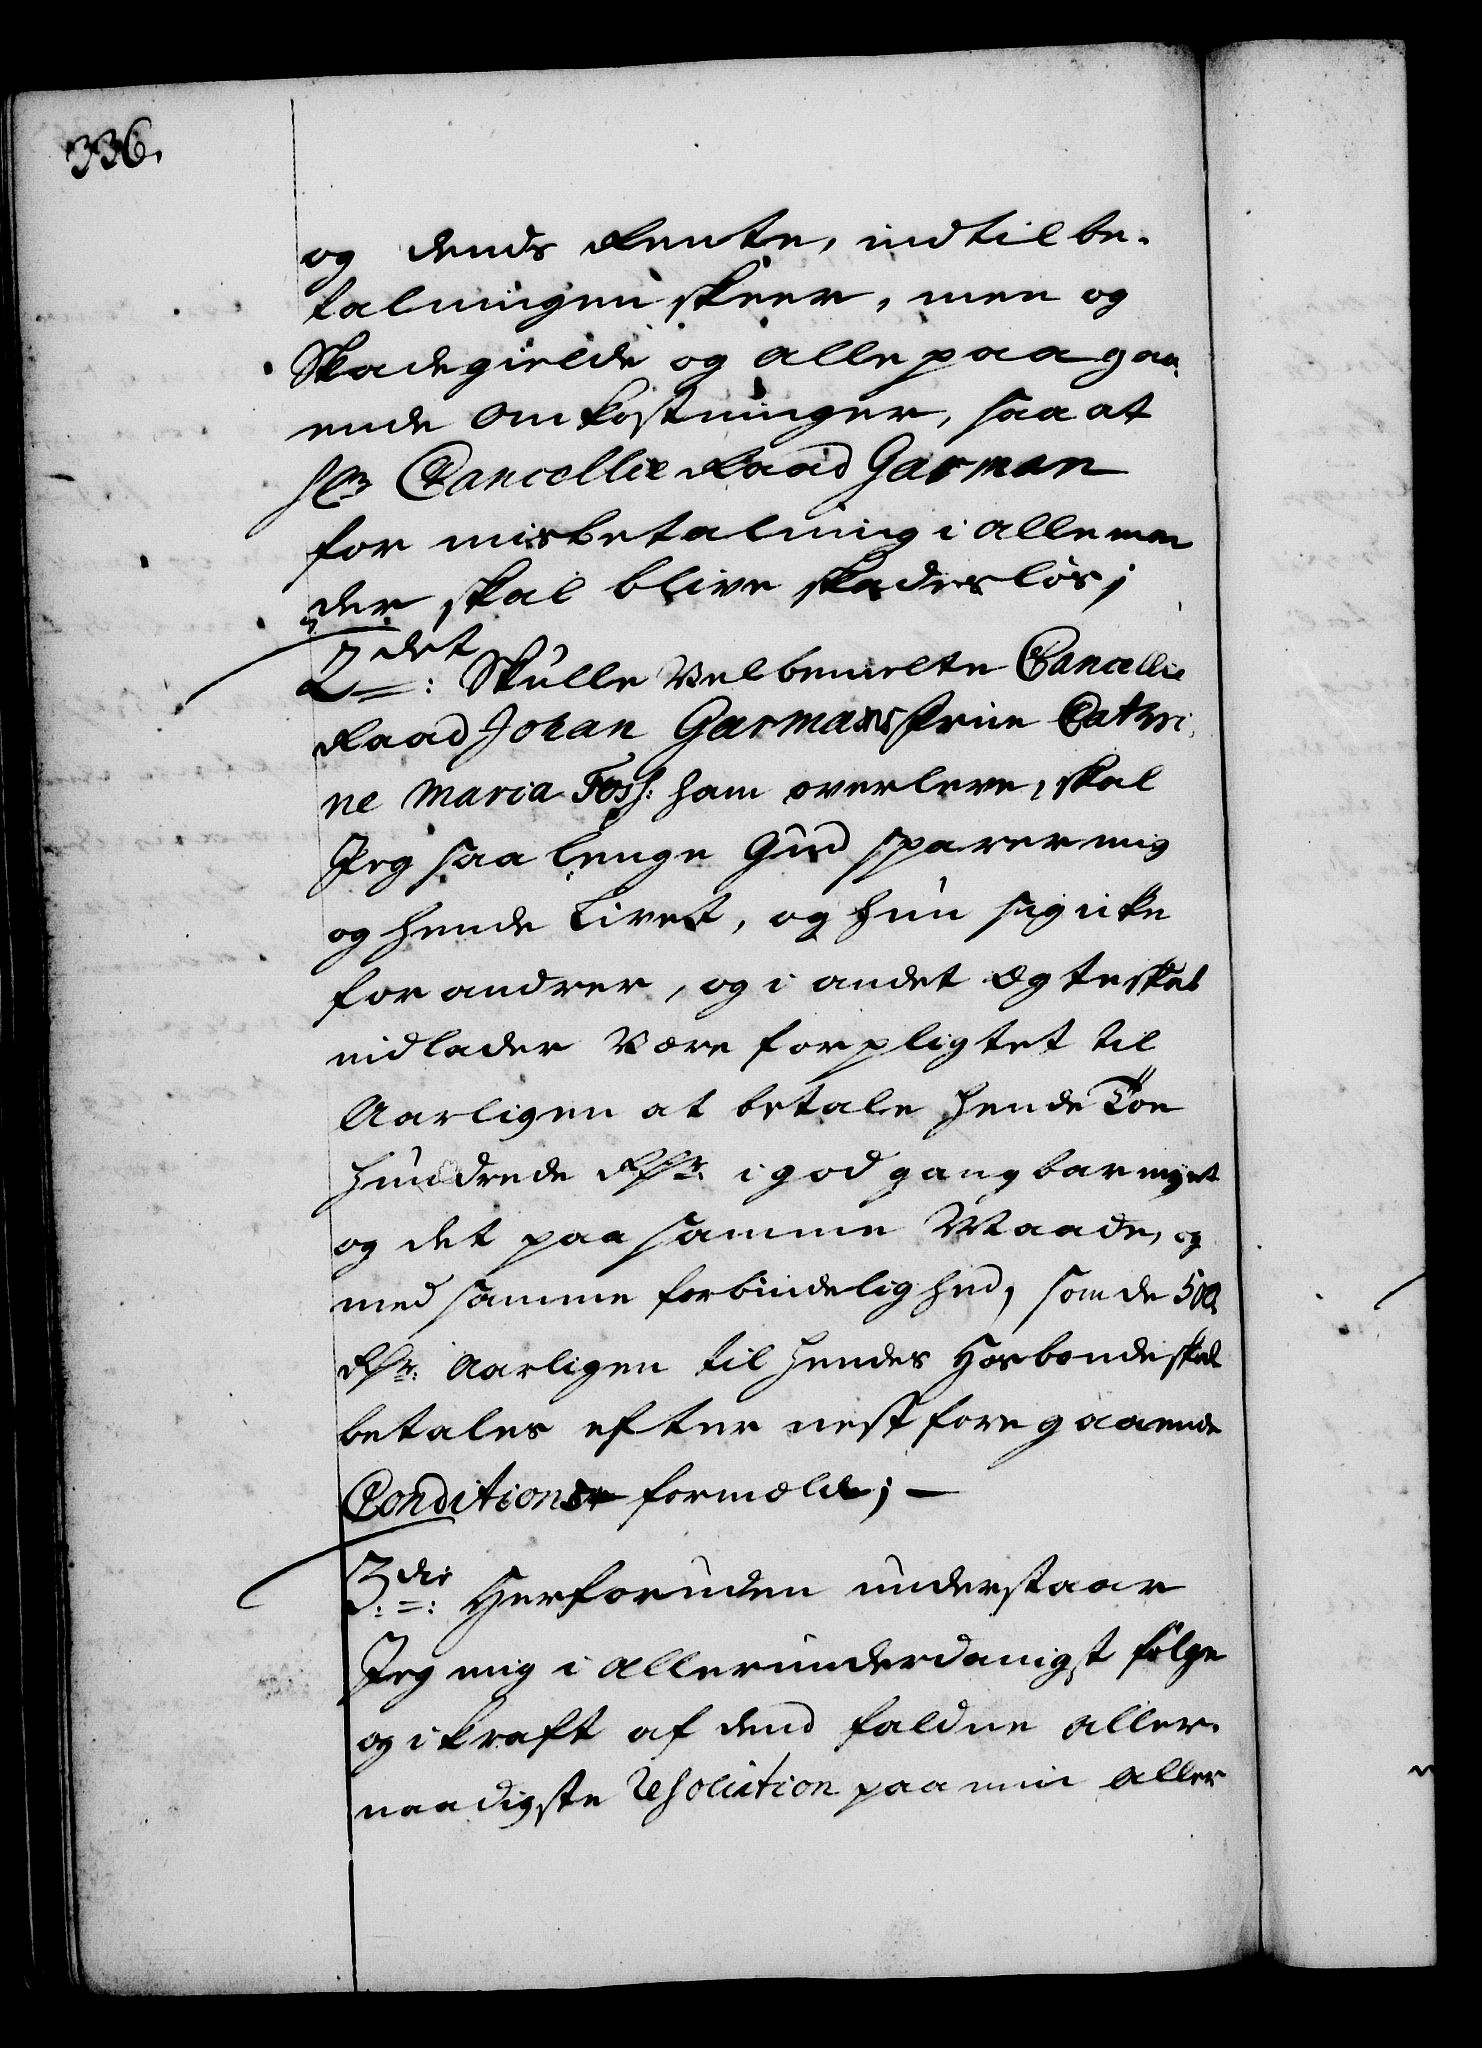 336.
og dends Rente, indtil be-
talningen skeer, men og
Skadegielde og alle paagaa-
ende Omkostninger, saa at
Hr Cancellie Raad Garman
for misbetalning i alle maa
der skal blive skadesløs;
2det: Skulle Velbemelte Cancellie
Raad Johan Garmans Frue Cathri-
ne Maria Foss: ham overleve, skal
Jeg saa lenge Gud sparer mig
og hende Livet, og hun sig icke
forandrer, og i andet Ægteskab
indlader Være forpligtet til
Aarligen at betale hende Toe
hundrede Rdr. i god gangbar mynt
og det paa samme Maade, og
med samme forbindelighed, som de 500
Rdr. Aarligen til hendes Hosbonde skal
betales efter nest foregaaende
Conditions formæld; —
3die: Herforuden understaar
Jeg mig i allerunderdanigst følge
og i kraft af dend faldne aller-
naadigste Resolution paa min aller